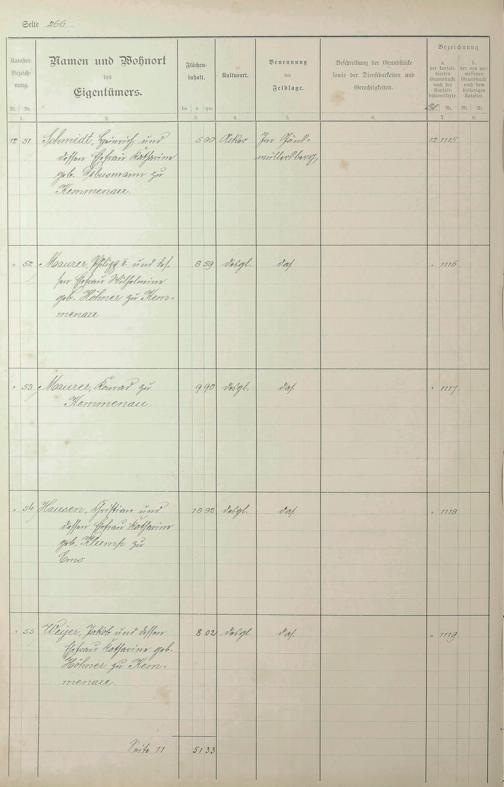 Seite 266
Kataster-
Bezeich-
nung.
Namen und Wohnort
des
Eigentümers.
Flächen-
inhalt.
Kulturart.
Benennung
der
Feldlage.
Beschreibung der Grundstücke
sowie der Dienstbarkeiten und
Gerechtigkeiten.
Bezeichnung
a. der
Grundstücke
nach der
b.
Grundstücke
nach dem
bisherigen
Kataster.
Bl. Nr. ha a qm Bl. Nr. Bl. Nr.
1. 2. 3. 4. 5. 6. 7. 8.
12 51 Schmidt, Heinrich und 5 90 Acker Im 12 1115
dessen Ehefrau Katharine müllersberg
geb. zu
Kemmenau.
" 52 Maurer, Philipp und des- 8 59 desgl. das. " 1116
sen Ehefrau Wilhelmine
geb. Höhner zu Kem-
menau
" 53 Maurer, Konrad zu 9 90 desgl. das. " 1117
Kemmenau.
" 54 Hausen, Christian und 18 92 desgl. das. " 1118
dessen Ehefrau Katharine
geb. Klump zu
Ems
" 55 Weyer, Jakob und dessen 8 02 desgl. das. " 1119
Ehefrau Katharine geb.
Höhner zu Kem-
menau.
Seite 11 51 33